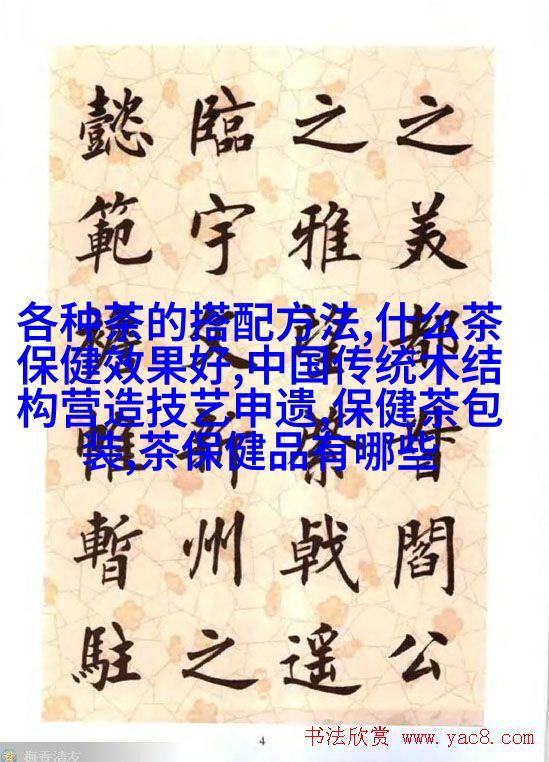 之美都督閻公
之雅望棨戟遥
臨宇文新州之
懿範襜帷暫駐
各种茶的搭配方法,什么茶
保健效果好,中国传统木结
构营造技艺申遗,保健茶包
装,茶保健品有哪些
4
书法欣赏 www.yac8.com